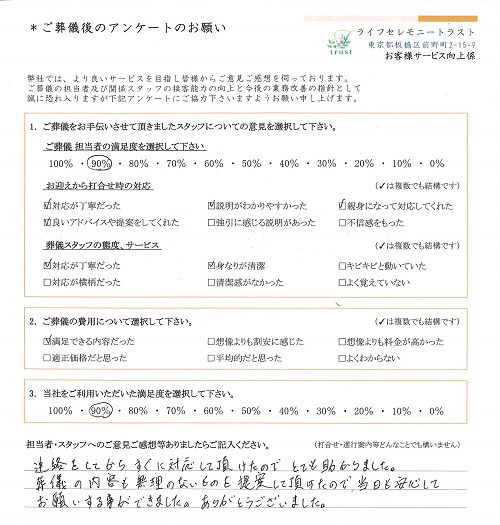 *ご葬儀後のアンケートのお願い
trust
ライフセレモニートラスト
東京都板橋区前野町2-15-9
お客様サービス向上係
弊社では、より良いサービスを目指し皆様からご意見ご感想を伺っております。
ご葬儀の担当者及び関係スタッフの接客能力の向上と今後の業務改善の指針として
誠に恐れ入りますが下記アンケートにご協力下さいますようお願い申し上げます。
1. ご葬儀をお手伝いさせて頂きましたスタッフについての意見を選択して下さい。
ご葬儀 担当者の満足度を選択して下さい
100% ・ 90% ・ 80% ・ 70% ・ 60% ・ 50% ・ 40% ・ 30% ・ 20% ・ 10% ・ 0%
お迎えから打合せ時の対応 (✓は複数でも結構です)
☑対応が丁寧だった ☑説明がわかりやすかった ☑親身になって対応してくれた
☑良いアドバイスや提案をしてくれた □強引に感じる説明があった □不信感をもった
葬儀スタッフの態度、サービス (✓は複数でも結構です)
☑対応が丁寧だった ☑身なりが清潔 □キビキビと動いていた
□対応が横柄だった □清潔感がなかった □よく覚えていない
2. ご葬儀の費用について選択して下さい。 (✓は複数でも結構です)
☑満足できる内容だった □想像よりも割安に感じた □想像よりも料金が高かった
□適正価格だと思った □平均的だと思った □よくわからない
3. 当社をご利用いただいた満足度を選択して下さい。
100% ・ 90% ・ 80% ・ 70% ・ 60% ・ 50% ・ 40% ・ 30% ・ 20% ・ 10% ・ 0%
担当者・スタッフへのご意見ご感想等ありましたらご記入ください。 (打合せ・進行案内等どんなことでも構いません)
連絡をしてからすぐに対応して頂けたのでとても助かりました。
葬儀の内容も無理のないものを提案して頂けたので当日も安心して
お願いする事ができました。ありがとうございました。